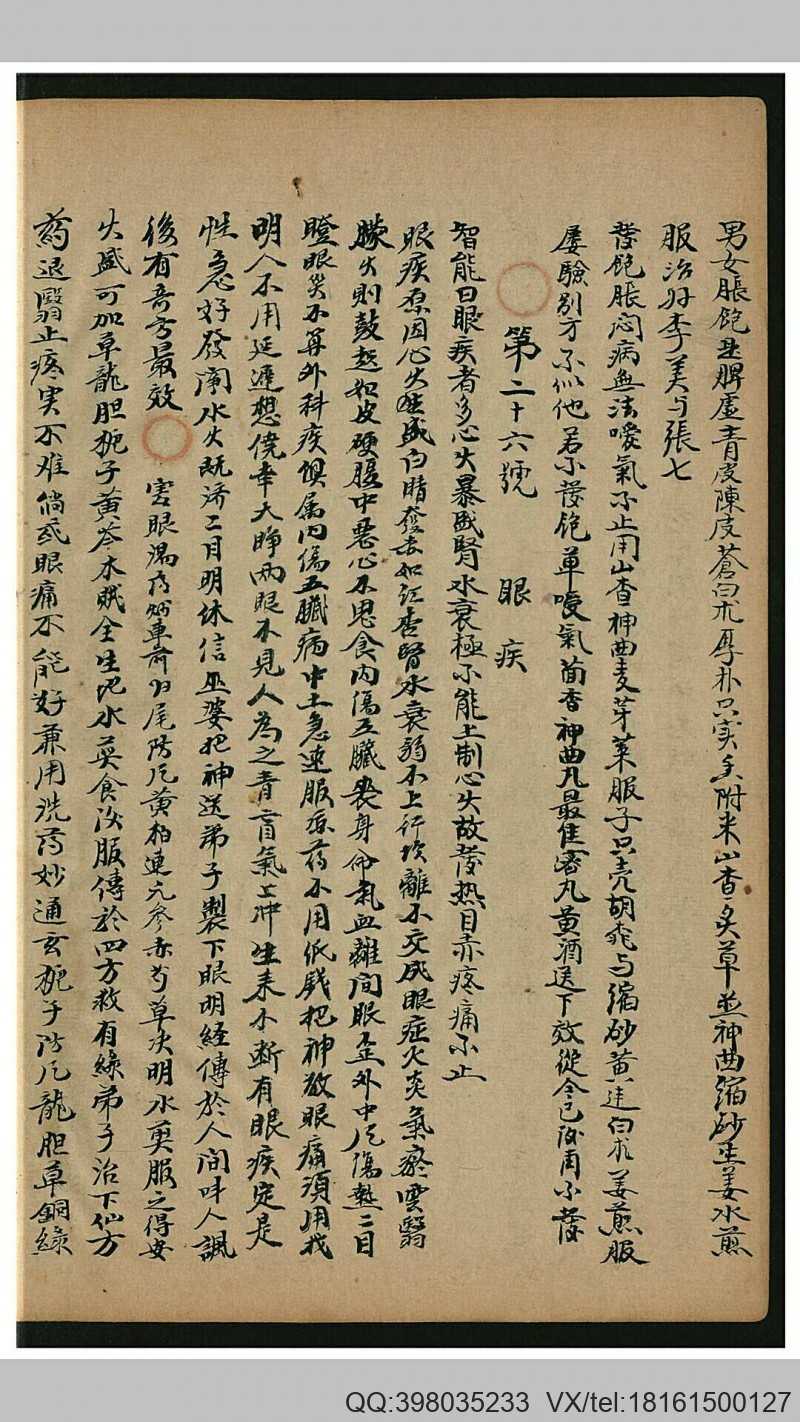 男女脹飽並脾虛青皮陳皮蒼白朮厚朴只实香附米山查炙草並神曲縮砂生姜水煎
服治好李美与張七
發飽脹悶病無法噯氣不止用山查神曲麦芽菜服子只壳胡桃与縮砂黄連白朮姜煎服
屡驗别方不似他若不發飽單噯氣茴香神曲丸最佳蜜丸黄酒送下效從今已後再不發
第二十六號 眼疾
智能曰眼疾者多心火暴盛腎水衰極不能上制心火故發热目赤疼痛不止
眼疾原因心火盛白睛發赤如紅杏腎水衰弱不上行坎離不交成眼症火炎氣瘀雲翳
朦火則鼓起如皮硬腹中惡心不思食内傷五臓喪身命氣血離间眼歪外中風傷热二目
瞪眼災不算外科疾俱属内傷五臟病中土急速服凉药不用低錢把神敬眼痛須用找
明人不用延遲想僥幸大睁兩眼不見人為之青盲氣上冲生来不断有眼疾定是
性急好發闇水火既济二目明休信巫婆把神送弟子製下眼明経傳於人间叫人諷
後有奇方最效 害眼湯药炳車前归尾防风黄柏連元参赤芍草决明水煎服之得安
火盛可加草龍胆栀子黄芩木贼全生地水煎食後服傳於四方救有緣弟子治下仙方
药退翳止疼实不难倘或眼痛不能好兼用洗药妙通玄栀子防风龍胆草銅綠
QQ:398035233 VX/tel:18161500127